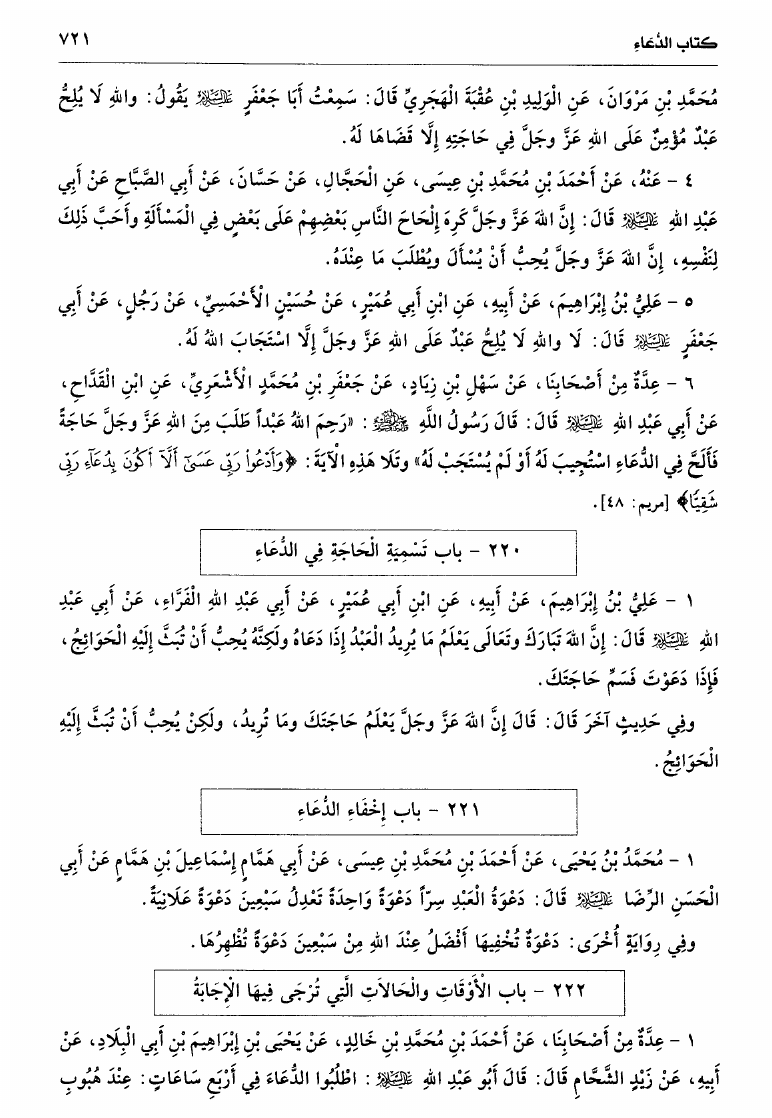 كتاب الدُّعَاءِ ٧٢١
مُحَمَّدِ بْنِ مَرْوَانَ، عَنِ الْوَلِيدِ بْنِ عُقْبَةَ الْهَجَرِيِّ قَالَ: سَمِعْتُ أَبَا جَعْفَرٍ عَلَيْهِ السَّلَام يَقُولُ: واللهِ لَا يُلِحُّ
عَبْدٌ مُؤْمِنٌ عَلَى اللهِ عَزَّ وجَلَّ فِي حَاجَتِهِ إِلَّا قَضَاهَا لَهُ.
٤ - عَنْهُ، عَنْ أَحْمَدَ بْنِ مُحَمَّدِ بْنِ عِيسَى، عَنِ الْحَجَّالِ، عَنْ حَسَّانَ، عَنْ أَبِي الصَّبَّاحِ عَنْ أَبِي
عَبْدِ اللهِ عَلَيْهِ السَّلَام قَالَ: إِنَّ اللهَ عَزَّ وجَلَّ كَرِهَ إِلْحَاحَ النَّاسِ بَعْضِهِمْ عَلَى بَعْضٍ فِي الْمَسْأَلَةِ وأَحَبَّ ذَلِكَ
لِنَفْسِهِ، إِنَّ اللهَ عَزَّ وجَلَّ يُحِبُّ أَنْ يُسْأَلَ ويُطْلَبَ مَا عِنْدَهُ.
٥ - عَلِيُّ بْنُ إِبْرَاهِيمَ، عَنْ أَبِيهِ، عَنِ ابْنِ أَبِي عُمَيْرٍ، عَنْ حُسَيْنٍ الْأَحْمَسِيِّ، عَنْ رَجُلٍ، عَنْ أَبِي
جَعْفَرٍ عَلَيْهِ السَّلَام قَالَ: لَا واللهِ لَا يُلِحُّ عَبْدٌ عَلَى اللهِ عَزَّ وجَلَّ إِلَّا اسْتَجَابَ اللهُ لَهُ.
٦ - عِدَّةٌ مِنْ أَصْحَابِنَا، عَنْ سَهْلِ بْنِ زِيَادٍ، عَنْ جَعْفَرِ بْنِ مُحَمَّدٍ الْأَشْعَرِيِّ، عَنِ ابْنِ الْقَدَّاحِ،
عَنْ أَبِي عَبْدِ اللهِ عَلَيْهِ السَّلَام قَالَ: قَالَ رَسُولُ اللَّهِ ﷺ: «رَحِمَ اللهُ عَبْداً طَلَبَ مِنَ اللهِ عَزَّ وجَلَّ حَاجَةً
فَأَلَحَّ فِي الدُّعَاءِ اسْتُجِيبَ لَهُ أَوْ لَمْ يُسْتَجَبْ لَهُ» وتَلَا هَذِهِ الْآيَةَ: ﴿وَأَدْعُواْ رَبِّي عَسَىٰٓ أَلَّآ أَكُونَ بِدُعَآءِ رَبِّي
شَقِيًّا﴾ [مريم: ٤٨].
٢٢٠ - باب تَسْمِيَةِ الْحَاجَةِ فِي الدُّعَاءِ
١ - عَلِيُّ بْنُ إِبْرَاهِيمَ، عَنْ أَبِيهِ، عَنِ ابْنِ أَبِي عُمَيْرٍ، عَنْ أَبِي عَبْدِ اللهِ الْفَرَّاءِ، عَنْ أَبِي عَبْدِ
اللهِ عَلَيْهِ السَّلَام قَالَ: إِنَّ اللهَ تَبَارَكَ وتَعَالَى يَعْلَمُ مَا يُرِيدُ الْعَبْدُ إِذَا دَعَاهُ ولَكِنَّهُ يُحِبُّ أَنْ تُبَثَّ إِلَيْهِ الْحَوَائِجُ،
فَإِذَا دَعَوْتَ فَسَمِّ حَاجَتَكَ.
وفِي حَدِيثٍ آخَرَ قَالَ: قَالَ إِنَّ اللهَ عَزَّ وجَلَّ يَعْلَمُ حَاجَتَكَ ومَا تُرِيدُ، ولَكِنْ يُحِبُّ أَنْ تُبَثَّ إِلَيْهِ
الْحَوَائِجُ.
٢٢١ - باب إِخْفَاءِ الدُّعَاءِ
١ - مُحَمَّدُ بْنُ يَحْيَى، عَنْ أَحْمَدَ بْنِ مُحَمَّدِ بْنِ عِيسَى، عَنْ أَبِي هَمَّامٍ إِسْمَاعِيلَ بْنِ هَمَّامٍ عَنْ أَبِي
الْحَسَنِ الرِّضَا عَلَيْهِ السَّلَام قَالَ: دَعْوَةُ الْعَبْدِ سِرّاً دَعْوَةً وَاحِدَةً تَعْدِلُ سَبْعِينَ دَعْوَةً عَلَانِيَةً.
وفِي رِوَايَةٍ أُخْرَى: دَعْوَةٌ تُخْفِيهَا أَفْضَلُ عِنْدَ اللهِ مِنْ سَبْعِينَ دَعْوَةً تُظْهِرُهَا.
٢٢٢ - باب الْأَوْقَاتِ والْحَالَاتِ الَّتِي تُرْجَى فِيهَا الْإِجَابَةُ
١ - عِدَّةٌ مِنْ أَصْحَابِنَا، عَنْ أَحْمَدَ بْنِ مُحَمَّدِ بْنِ خَالِدٍ، عَنْ يَحْيَى بْنِ إِبْرَاهِيمَ بْنِ أَبِي الْبِلَادِ، عَنْ
أَبِيهِ، عَنْ زَيْدٍ الشَّحَّامِ قَالَ: قَالَ أَبُو عَبْدِ اللهِ عَلَيْهِ السَّلَام: اطْلُبُوا الدُّعَاءَ فِي أَرْبَعِ سَاعَاتٍ: عِنْدَ هُبُوبِ